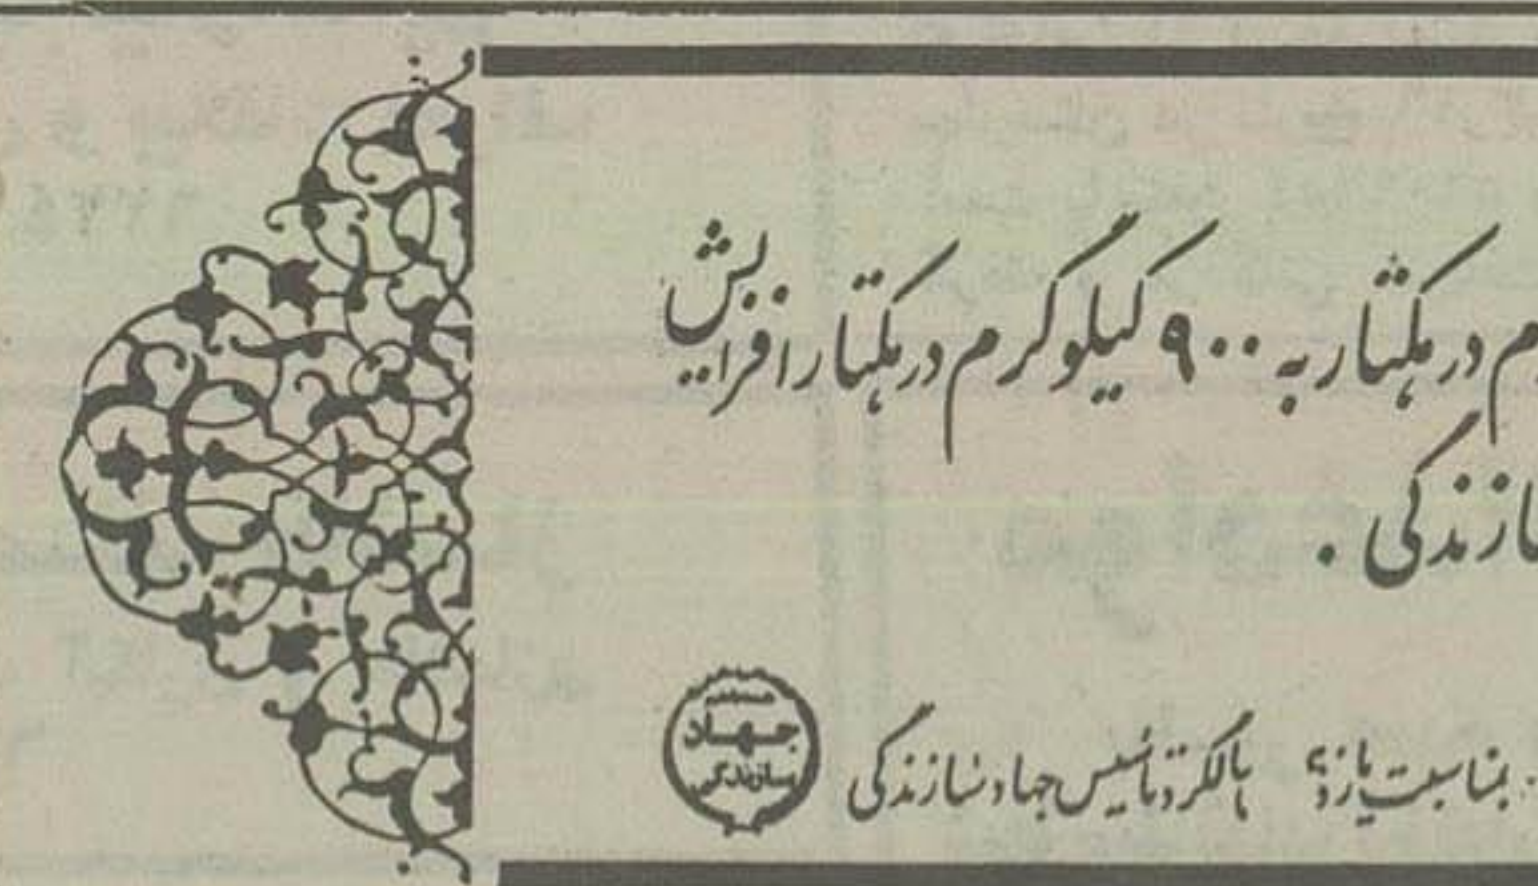 م در هکتار به ۹۰۰ کیلوگرم در هکتار افزایش
ازندگی .
بمناسبت یازدهمین سالگرد تاسیس جهاد سازندگی
جهاد
سازندگی